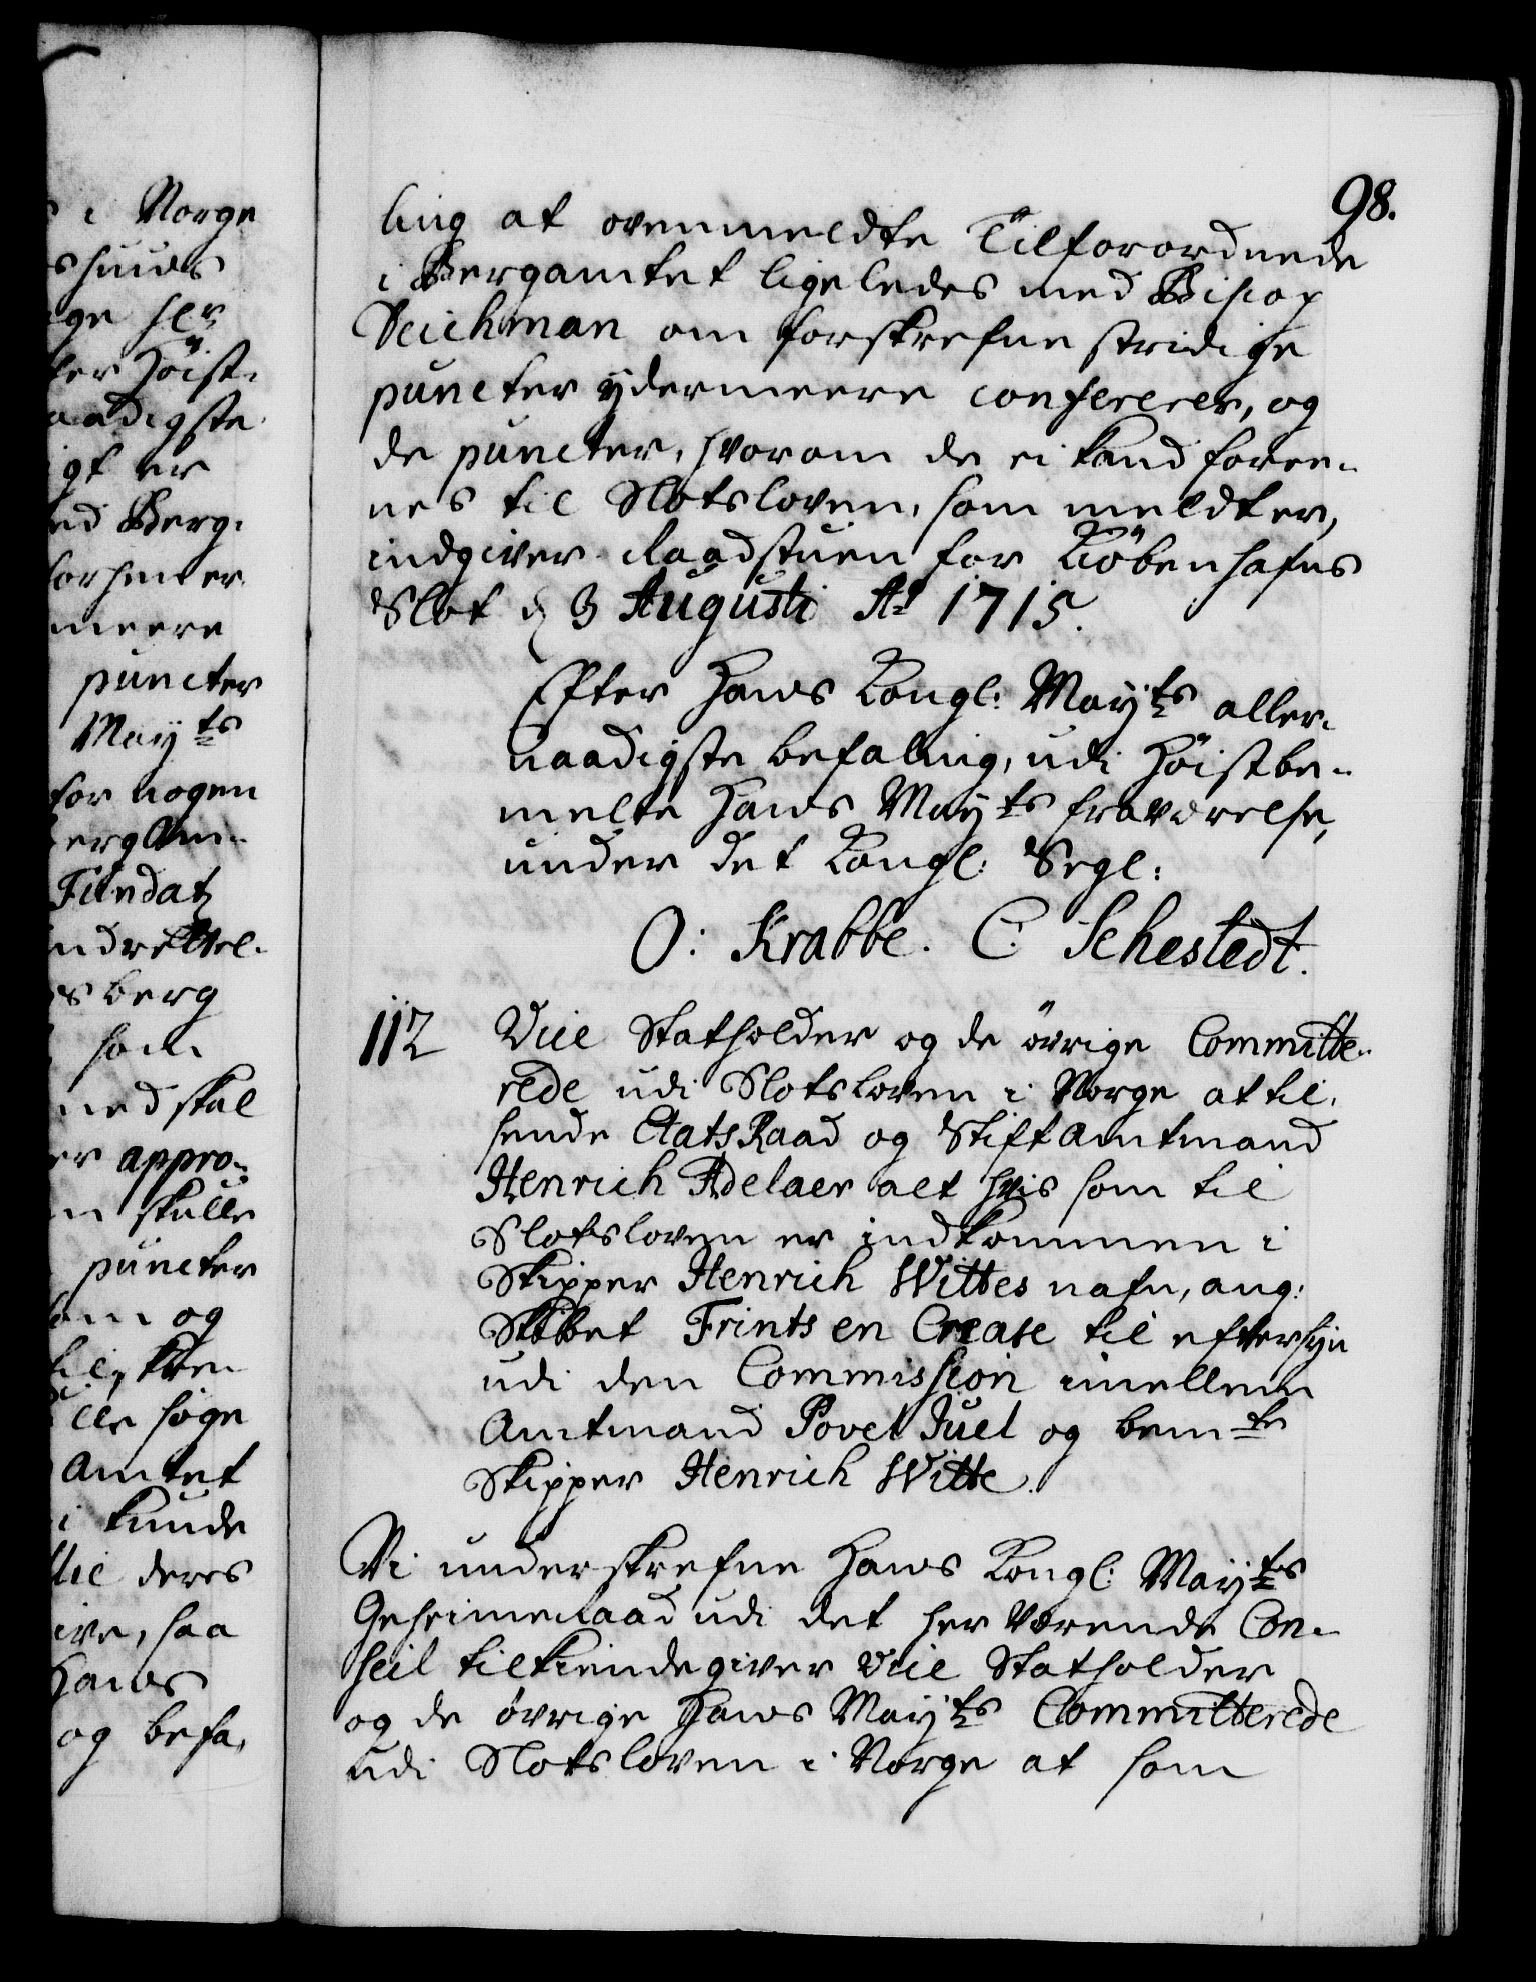 98.
ling at ovenmeldte Tilforordnede
i Bergamtet ligeledes med Biscop
Deichman om forskrefne stridige
puncter ydermeere confererer, og
de puncter, hvorom de ei kand foree-
nes til Slotsloven, som meldt er,
indgiver. Raadstuen for Kiöbenhafns
Slot d 3 Augusti Ao 1715.
Efter Hans Kongl: Mayts aller-
naadigste befaling, udi Höistbe-
melte Hans Mayts fraværelse,
under det Kongl: Segl:
O: Krabbe. C. Sehestedt.
112 Vice Statholder og de övrige Committe-
rede udi Slotsloven i Norge at til-
sende EtatsRaad og Stiftamtmand
Henrich Adelaer alt hvis som til
Slotsloven er indkommen i
Skipper Henrich Wittes nafn, ang:
Skibet Frints en Crease til eftersyn
udi den Commission imellem
Amtmand Povel Juel og bemte
Skipper Henrich Witte.
Vi underskrefne Hans Kongl: Mayts
Geheimeraad udi det her værende Con-
seil tilkiendegiver Vice Statholder
og de övrige Hans Mayts Committerede
udi Slotsloven i Norge at som
i Norge
shuus
ge her
ler Höist-
aadigste
igt er
ed Berg-
for
meere
puncter
Mayts
for nogen
ergAm-
Fundatz
ndrettel-
sberg
som
ned skal
er appro-
n skulle
puncter
om og
lle söge
Amtet
i kunde
deres
ive, saa
Hans
og befa-